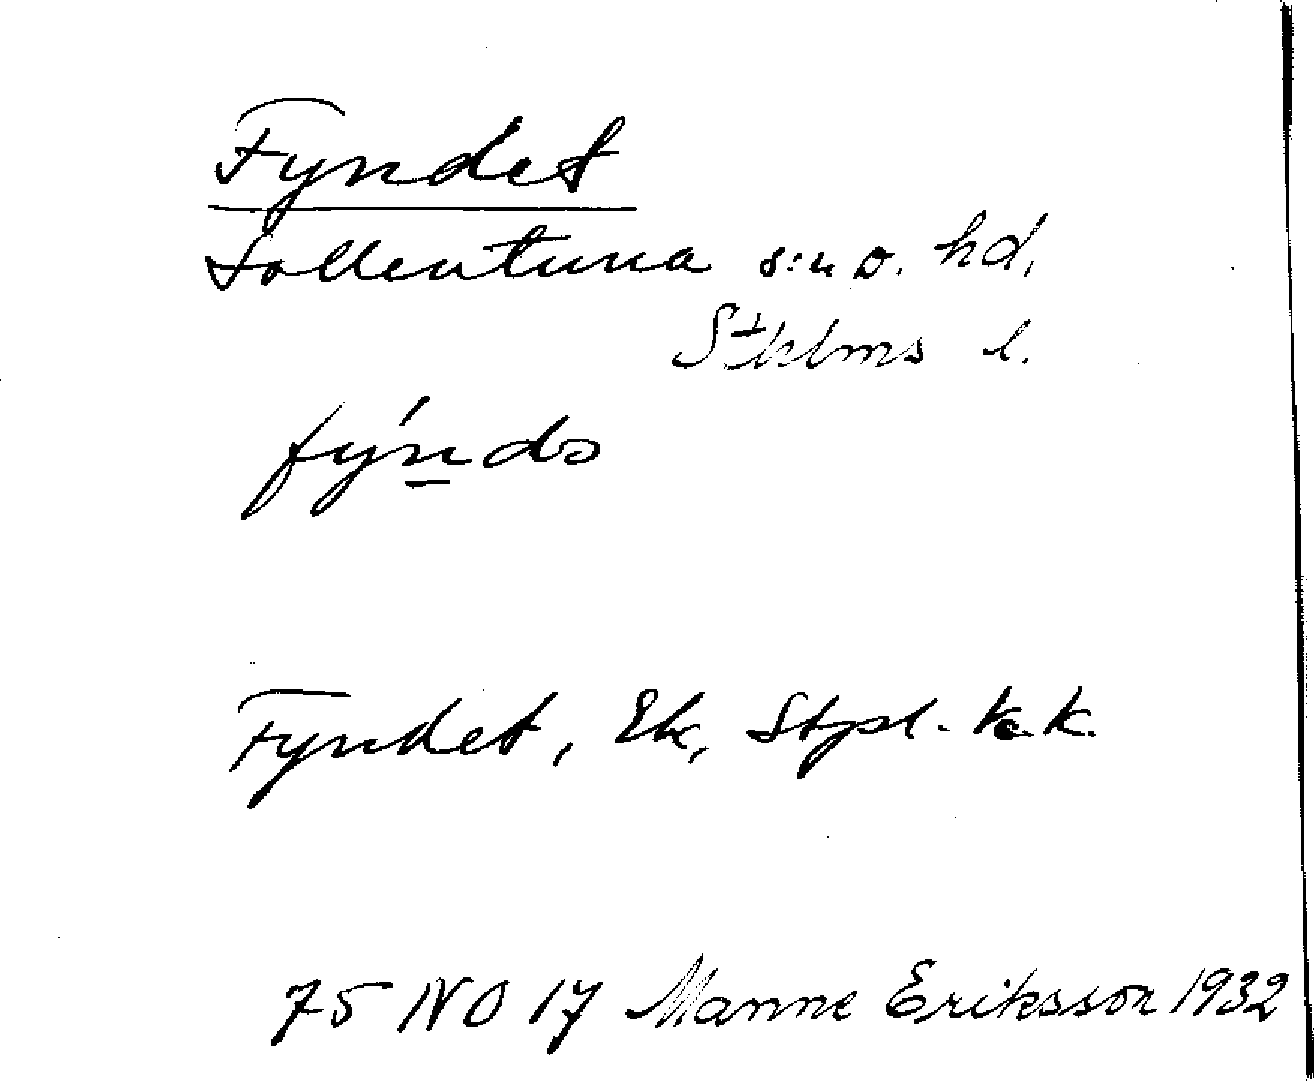 Fyndet
Sollentuna s:n o. hd.
Sthlms l.
fýndə
Fyndet, Ek, Stpl.
75 NO 17 Manne Eriksson 1932